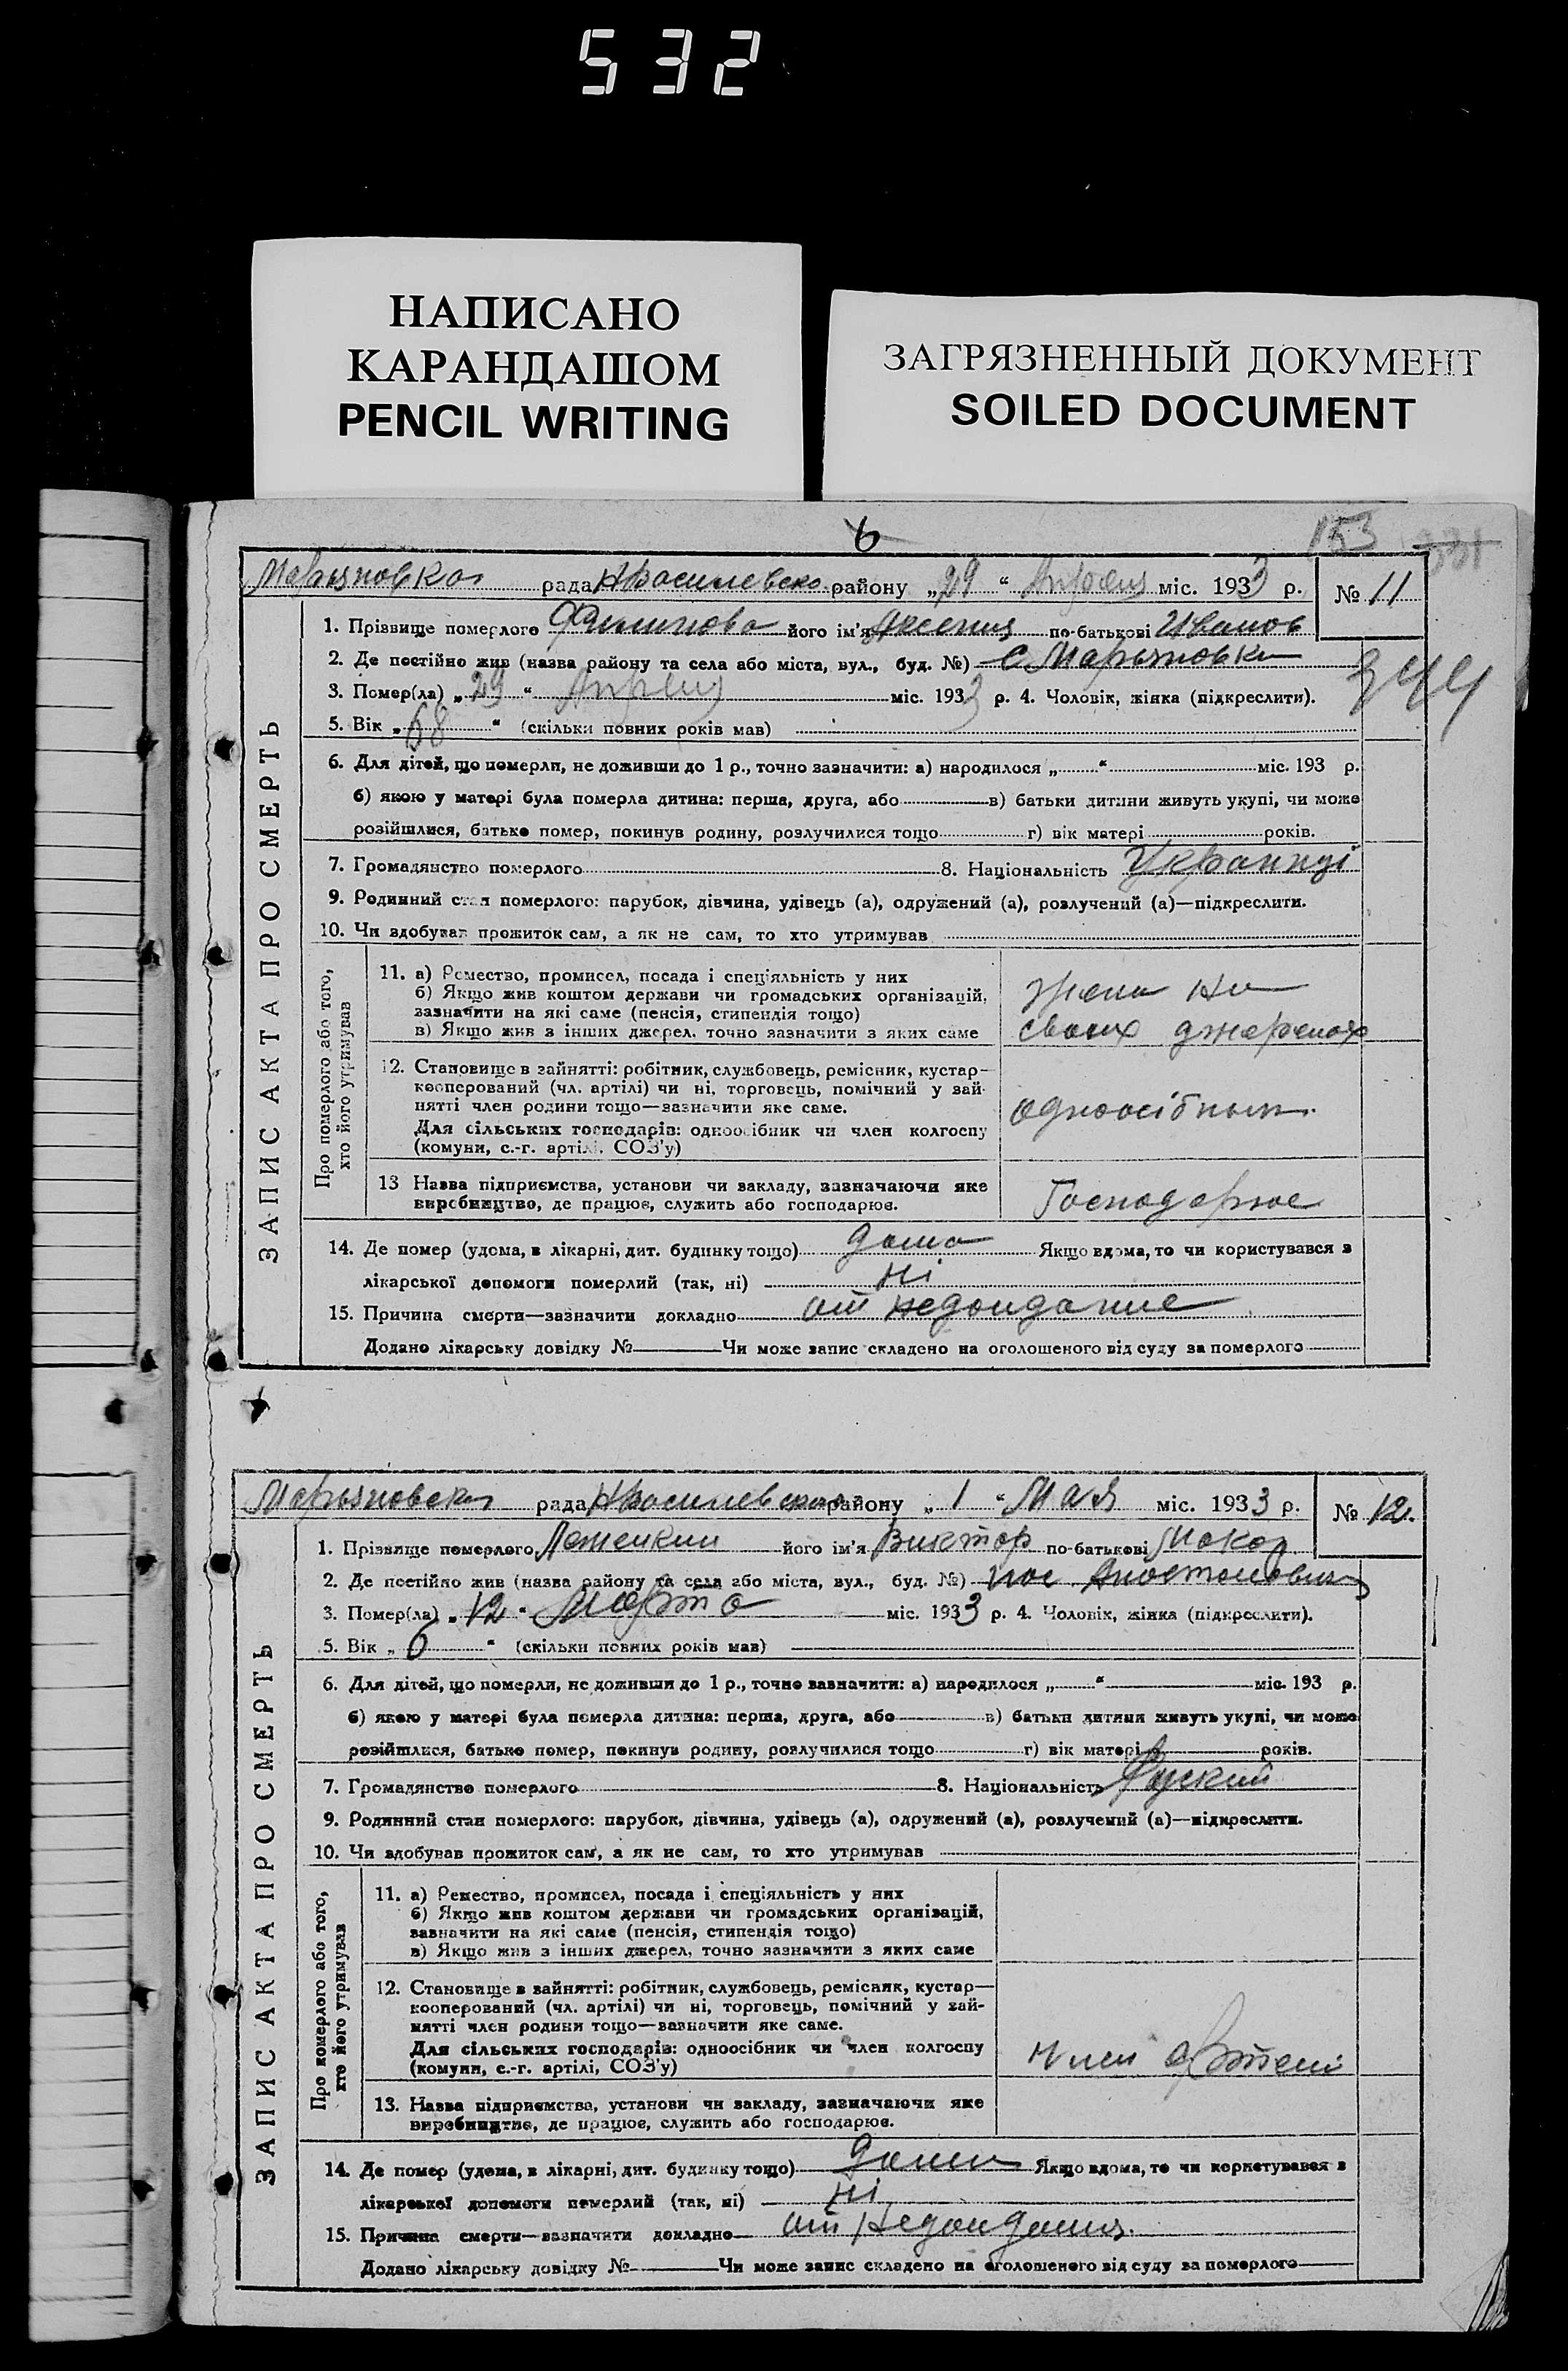 532
НАПИСАНО
КАРАНДАШОМ
PENCIL WRITING
ЗАГРЯЗНЕННЫЙ ДОКУМЕНТ
SOILED DOCUMENT
6
153 331
рада району „29“ Апреля міс. 1933 р. № 11
1. Прізвище померлого Филипова його ім'я Аксения по-батькові Иванов
2. Де постійно жив (назва району та села або міста, вул., буд. №) с Марьяновки
3. Помер(ла) „29“ Апреля міс. 1933 р. 4. Чоловік, жінка (підкреслити).
5. Вік „68“ (скільки повних років мав)
6. Для дітей, що померли, не доживши до 1 р., точно зазначити: а) народилося „ “ міс. 193 р.
б) якою у матері була померла дитина: перша, друга, або в) батьки дитини живуть укупі, чи може
розійшлися, батько помер, покинув родину, розлучилися тощо г) вік матері років.
7. Громадянство померлого 8. Національність
9. Родинний стан померлого: парубок, дівчина, удівець (а), одружений (а), розлучений (а)—підкреслити.
10. Чи здобував прожиток сам, а як не сам, то хто утримував
ЗАПИС АКТА ПРО СМЕРТЬ
Про померлого або того,
хто його утримував
11. а) Ремество, промисел, посада і спеціяльність у них
б) Якщо жив коштом держави чи громадських організацій,
зазначити на які саме (пенсія, стипендія тощо)
в) Якщо жив з інших джерел, точно зазначити з яких саме
на
своих
12. Становище в зайнятті: робітник, службовець, ремісник, кустар—
кооперований (чл. артілі) чи ні, торговець, помічний у зай-
нятті член родини тощо—зазначити яке саме.
Для сільських господарів: одноосібник чи член колгоспу
(комуни, с.-г. артілі, СОЗ'у)
13 Назва підприємства, установи чи закладу, зазначаючи яке
виробництво, де працює, служить або господарює.
14. Де помер (удома, в лікарні, дит. будинку тощо) дома Якщо вдома, то чи користувався з
лікарської допомоги померлий (так, ні) ні
15. Причина смерти—зазначити докладно от недоидание
Додано лікарську довідку № Чи може запис складено на оголошеного від суду за померлого
рада району „1“ Мая міс. 1933 р. № 12.
1. Прізвище померлого його ім'я Виктор по-батькові Макар
2. Де постійно жив (назва району та села або міста, вул., буд. №)
3. Помер(ла) „12“ Марта міс. 1933 р. 4. Чоловік, жінка (підкреслити).
5. Вік „6“ (скільки повних років мав)
6. Для дітей, що померли, не доживши до 1 р., точно зазначити: а) народилося „ “ міс. 193 р.
б) якою у матері була померла дитина: перша, друга, або в) батьки дитини живуть укупі, чи може
розійшлися, батько помер, покинув родину, розлучилися тощо г) вік матері років.
7. Громадянство померлого 8. Національність Руский
9. Родинний стан померлого: парубок, дівчина, удівець (а), одружений (а), розлучений (а)—підкреслити.
10. Чи здобував прожиток сам, а як не сам, то хто утримував
ЗАПИС АКТА ПРО СМЕРТЬ
Про померлого або того,
хто його утримував
11. а) Ремество, промисел, посада і спеціяльність у них
б) Якщо жив коштом держави чи громадських організацій,
зазначити на які саме (пенсія, стипендія тощо)
в) Якщо жив з інших джерел, точно зазначити з яких саме
12. Становище в зайнятті: робітник, службовець, ремісник, кустар—
кооперований (чл. артілі) чи ні, торговець, помічний у зай-
нятті член родини тощо—зазначити яке саме.
Для сільських господарів: одноосібник чи член колгоспу
(комуни, с.-г. артілі, СОЗ'у)
член артелі
13. Назва підприємства, установи чи закладу, зазначаючи яке
виробництво, де працює, служить або господарює.
14. Де помер (удома, в лікарні, дит. будинку тощо) дома Якщо вдома, то чи користувався з
лікарської допомоги померлий (так, ні) ні
15. Причина смерти—зазначити докладно от недоидания
Додано лікарську довідку № Чи може запис складено на оголошеного від суду за померлого